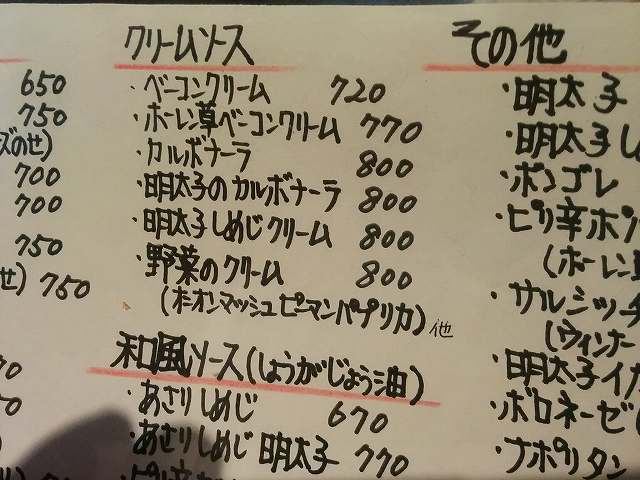 650
750
ズのせ)
700
700
750
せ) 750
クリームソース
・ベーコンクリーム 720
・ホーレン草ベーコンクリーム 770
・カルボナーラ 800
・明太子のカルボナーラ 800
・明太子しめじクリーム 800
・野菜のクリーム 800
(オニオンマッシュピーマンパプリカ)他
和風ソース(しょうがじょう油)
・あさりしめじ 670
・あさりしめじ明太子 770
その他
・明太子
・明太子し
・ボンゴレ
・ピリ辛ボン
(ホーレン
・サルシッチ
(ウィンナー
・明太子イカ
・ボロネーゼ(
・ナポリタン